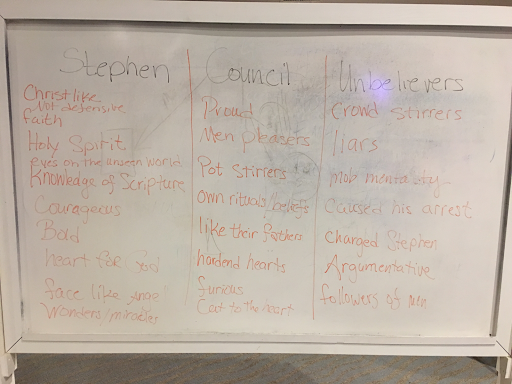 Stephen
Christlike
Not defensive
faith
Holy Spirit
eyes on the unseen world
Knowledge of Scripture
Courageous
Bold
heart for God
face like angel
Wonders/miracles
Council
Proud
Men pleasers
Pot stirrers
own rituals/beliefs
like their fathers
hardend hearts
furious
Cut to the heart
Unbelievers
Crowd stirrers
liars
mob mentality
Caused his arrest
Charged Stephen
Argumentative
followers of men